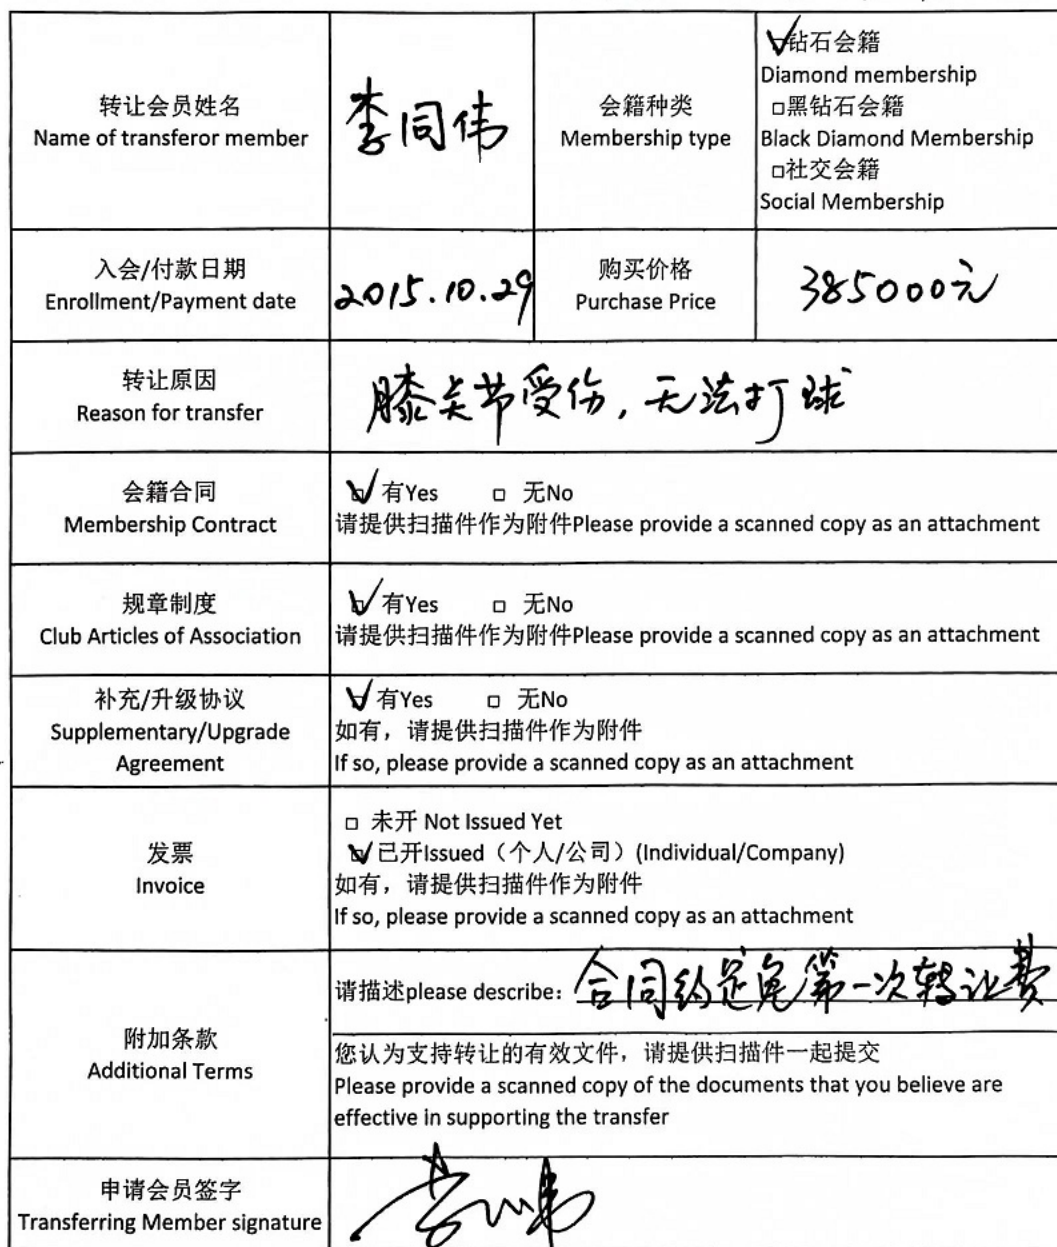 转让会员姓名
Name of transferor member
李同伟
会籍种类
Membership type
☑钻石会籍
Diamond membership
□黑钻石会籍
Black Diamond Membership
□社交会籍
Social Membership
入会/付款日期
Enrollment/Payment date
2015.10.29
购买价格
Purchase Price
385000元
转让原因
Reason for transfer
膝关节受伤,无法打球
会籍合同
Membership Contract
☑ 有Yes □ 无No
请提供扫描件作为附件Please provide a scanned copy as an attachment
规章制度
Club Articles of Association
☑ 有Yes □ 无No
请提供扫描件作为附件Please provide a scanned copy as an attachment
补充/升级协议
Supplementary/Upgrade
Agreement
☑ 有Yes □ 无No
如有，请提供扫描件作为附件
If so, please provide a scanned copy as an attachment
发票
Invoice
□ 未开 Not Issued Yet
☑已开Issued（个人/公司）(Individual/Company)
如有，请提供扫描件作为附件
If so, please provide a scanned copy as an attachment
附加条款
Additional Terms
请描述please describe: 合同约定免第一次转让费
您认为支持转让的有效文件，请提供扫描件一起提交
Please provide a scanned copy of the documents that you believe are
effective in supporting the transfer
申请会员签字
Transferring Member signature